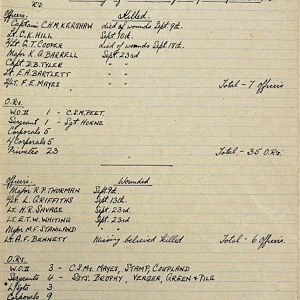 Officers. Killed.
Captain C.H.M. KERSHAW died of wounds Sept 9th.
Lt. C.K. HILL Sept. 10th.
2/Lt. G.T. COOPER died of wounds Sept 18th.
Major K.G. BARRELL Sept 23rd
Capt. D.B. TYLER " "
Lt. E.A. BARTLETT " "
2/Lt. F.E. MAYES " " Total - 7 officers.
O.Rs.
W.O.II 1 - C.S.M. PEET.
Sergeant 1 - Sgt HORNE
Corporals 5
L/Corporals 5
Privates 23 Total - 35 O.Rs.
Officers. Wounded
Major R.P. THORMAN Sept 9th.
Lt. L. GRIFFITHS Sept. 13th.
Lt. H.R. SAVAGE Sept. 23rd.
Lt. E.T.W. WHITING Sept. 23rd.
Major M.F. STANILAND " "
Lt. A.F. BENNETT Missing believed killed Total - 6 officers.
O.Rs.
W.O.II 3 - C.S.Ms. MAYES, STAMP, COUPLAND
Sergeants 4 - SGTS. BROPHY, VERGER, GREEN + TILE
L/Sgts 3
Corporals 9